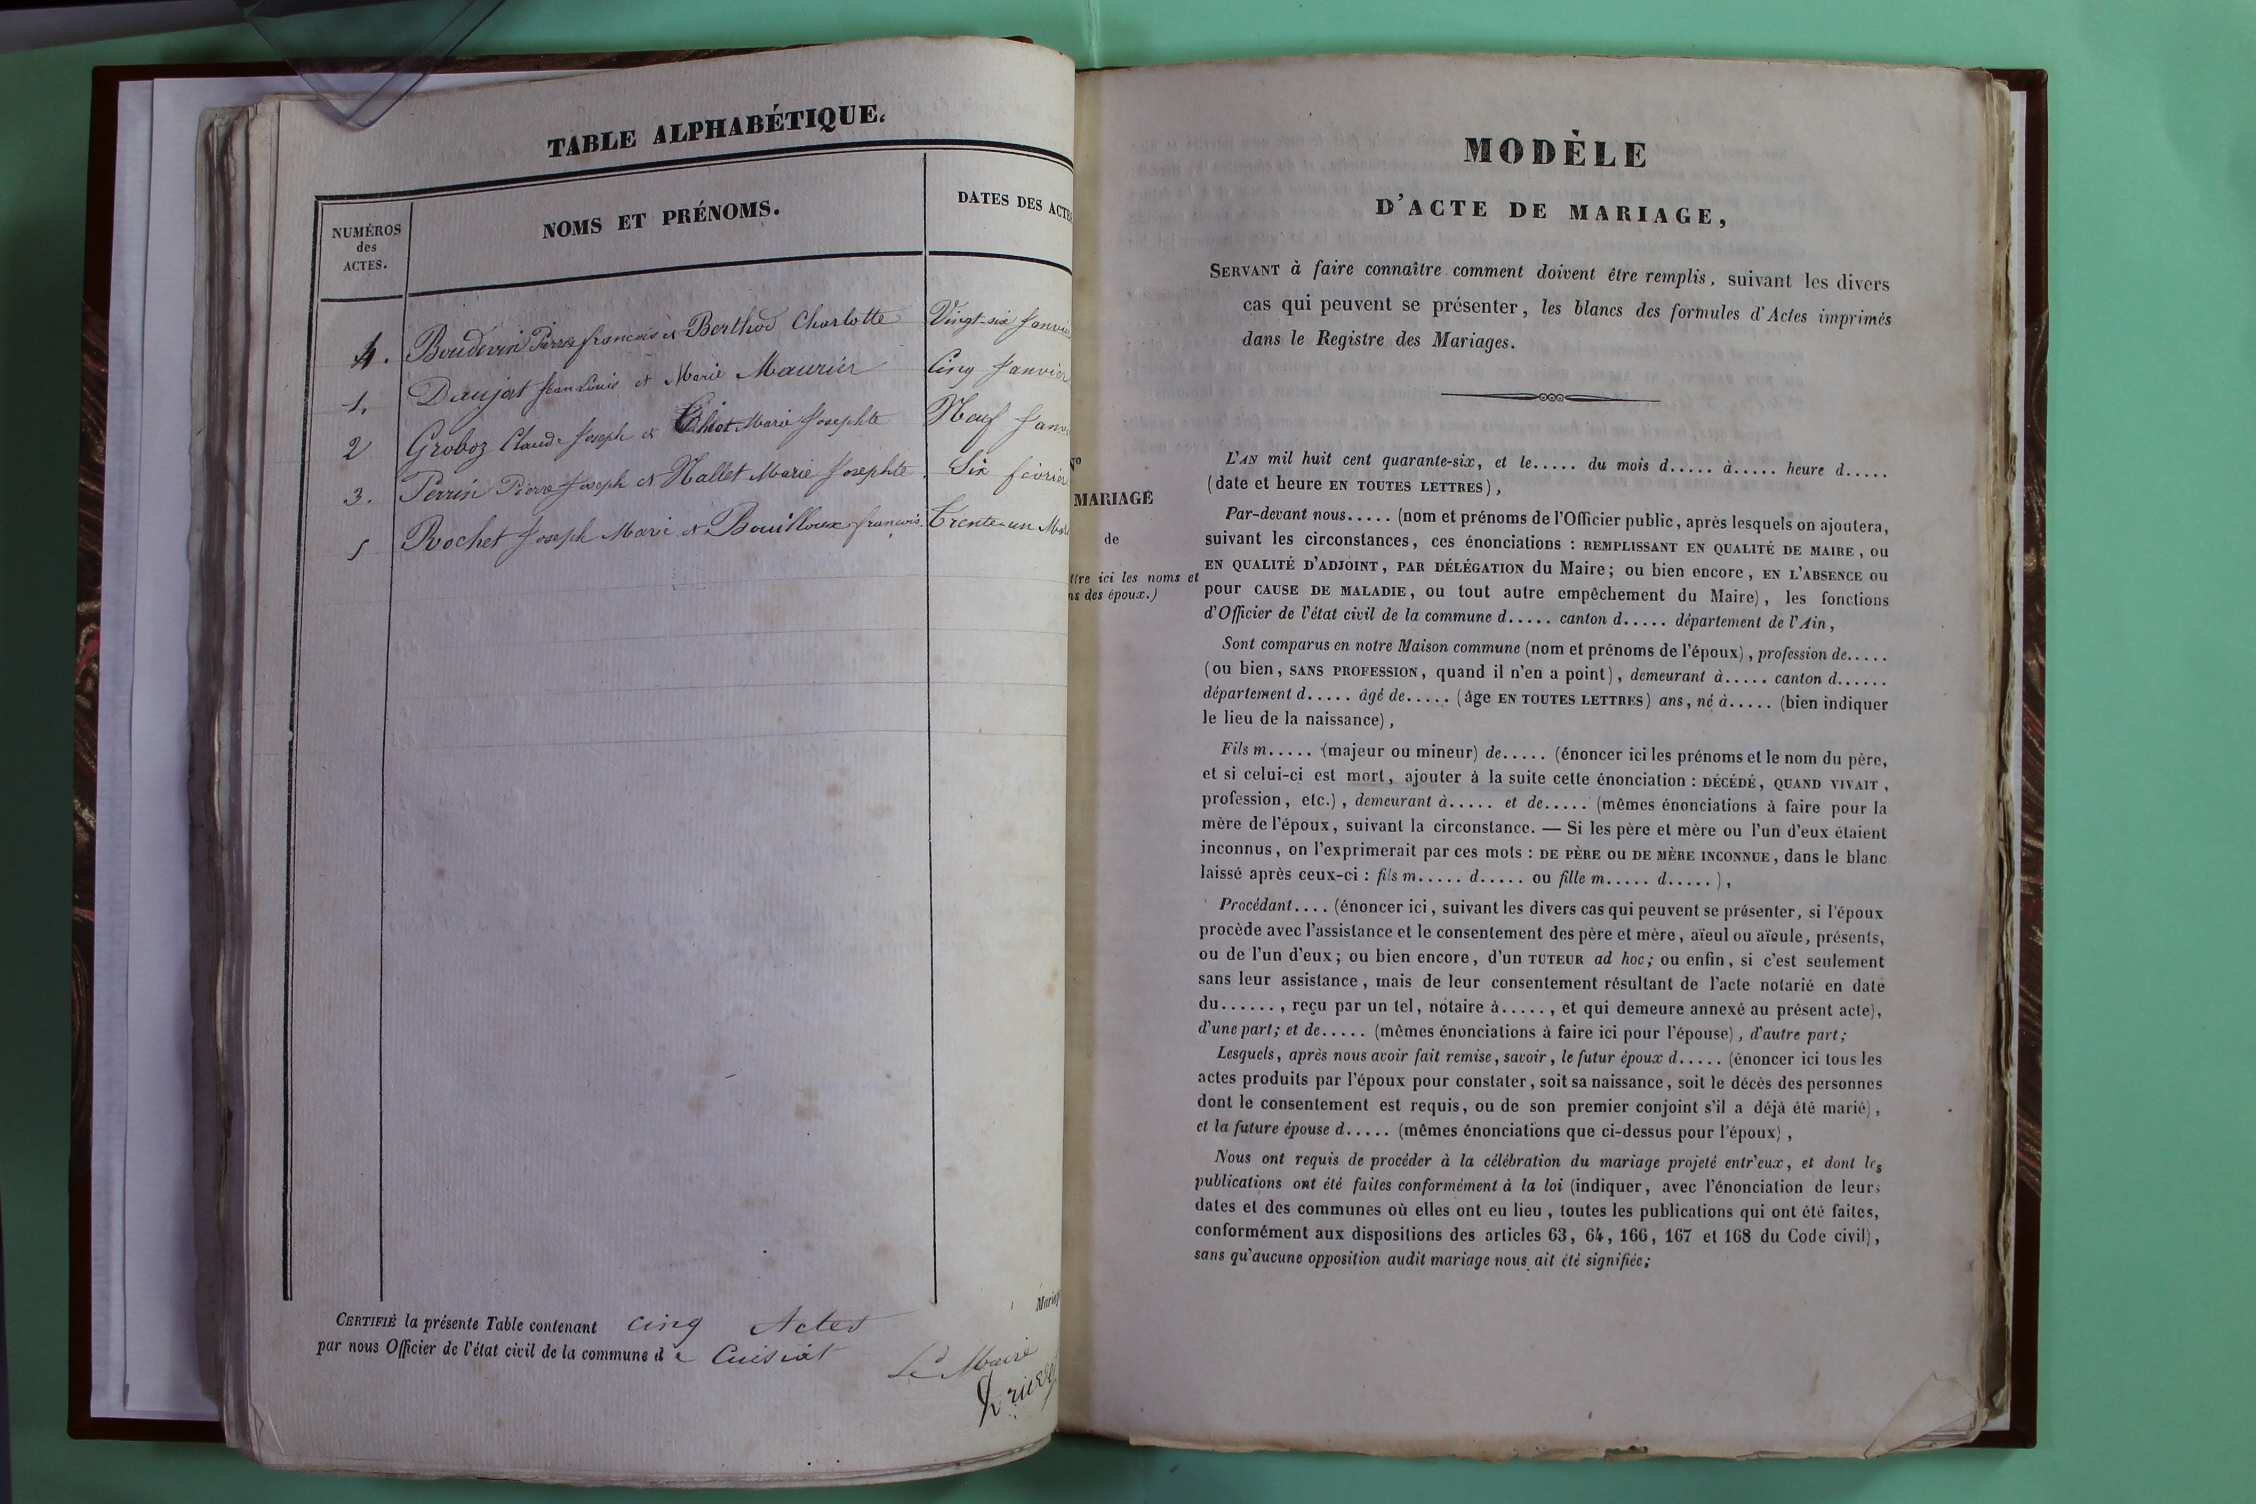 TABLE ALPHABÉTIQUE.
NUMÉROS
des
ACTES.
NOMS ET PRÉNOMS.
DATES DES ACTE
4. Boudevin Pierre françois et Berthod Charlotte Vingt-six Janvier
1. Daujat Jean Louis et Marie Maurier Cinq Janvier
2 Groboz Claude Joseph et Marie Josephte Neuf Janv
3. Perrin Pierre Joseph et Nallet Marie Josephte Six février
5 Rochet Joseph Marie et Bouilloux françois. Trente-un Mar
CERTIFIÉ la présente Table contenant cinq Actes
par nous Officier de l'état civil de la commune de Cuisiat
Le Maire
MODÈLE
D'ACTE DE MARIAGE,
SERVANT à faire connaître comment doivent être remplis, suivant les divers
cas qui peuvent se présenter, les blancs des formules d'Actes imprimés
dans le Registre des Mariages.
No
MARIAGE
de
ttre ici les noms et
ns des époux.)
L'AN mil huit cent quarante-six, et le..... du mois d..... à..... heure d.....
(date et heure EN TOUTES LETTRES),
Par-devant nous..... (nom et prénoms de l'Officier public, après lesquels on ajoutera,
suivant les circonstances, ces énonciations : REMPLISSANT EN QUALITÉ DE MAIRE, OU
EN QUALITÉ D'ADJOINT, PAR DÉLÉGATION du Maire; ou bien encore, EN L'ABSENCE OU
pour CAUSE DE MALADIE, ou tout autre empêchement du Maire), les fonctions
d'Officier de l'état civil de la commune d..... canton d..... département de l'Ain,
Sont comparus en notre Maison commune (nom et prénoms de l'époux), profession de.....
(ou bien, SANS PROFESSION, quand il n'en a point), demeurant à..... canton d......
département d..... âgé de..... (âge EN TOUTES LETTRES) ans, né à..... (bien indiquer
le lieu de la naissance),
Fils m..... (majeur ou mineur) de..... (énoncer ici les prénoms et le nom du père,
et si celui-ci est mort, ajouter à la suite cette énonciation : DÉCÉDÉ, QUAND VIVAIT,
profession, etc.), demeurant à..... et de..... (mêmes énonciations à faire pour la
mère de l'époux, suivant la circonstance. — Si les père et mère ou l'un d'eux étaient
inconnus, on l'exprimerait par ces mots : DE PÈRE OU DE MÈRE INCONNUE, dans le blanc
laissé après ceux-ci : fils m..... d..... ou fille m..... d.....),
Procédant.... (énoncer ici, suivant les divers cas qui peuvent se présenter, si l'époux
procède avec l'assistance et le consentement des père et mère, aïeul ou aïeule, présents,
ou de l'un d'eux; ou bien encore, d'un TUTEUR ad hoc; ou enfin, si c'est seulement
sans leur assistance, mais de leur consentement résultant de l'acte notarié en date
du......, reçu par un tel, notaire à....., et qui demeure annexé au présent acte),
d'une part; et de..... (mêmes énonciations à faire ici pour l'épouse), d'autre part;
Lesquels, après nous avoir fait remise, savoir, le futur époux d..... (énoncer ici tous les
actes produits par l'époux pour constater, soit sa naissance, soit le décès des personnes
dont le consentement est requis, ou de son premier conjoint s'il a déjà été marié),
et la future épouse d..... (mêmes énonciations que ci-dessus pour l'époux),
Nous ont requis de procéder à la célébration du mariage projeté entr'eux, et dont les
publications ont été faites conformément à la loi (indiquer, avec l'énonciation de leurs
dates et des communes où elles ont eu lieu, toutes les publications qui ont été faites,
conformément aux dispositions des articles 63, 64, 166, 167 et 168 du Code civil),
sans qu'aucune opposition audit mariage nous ait été signifiée;